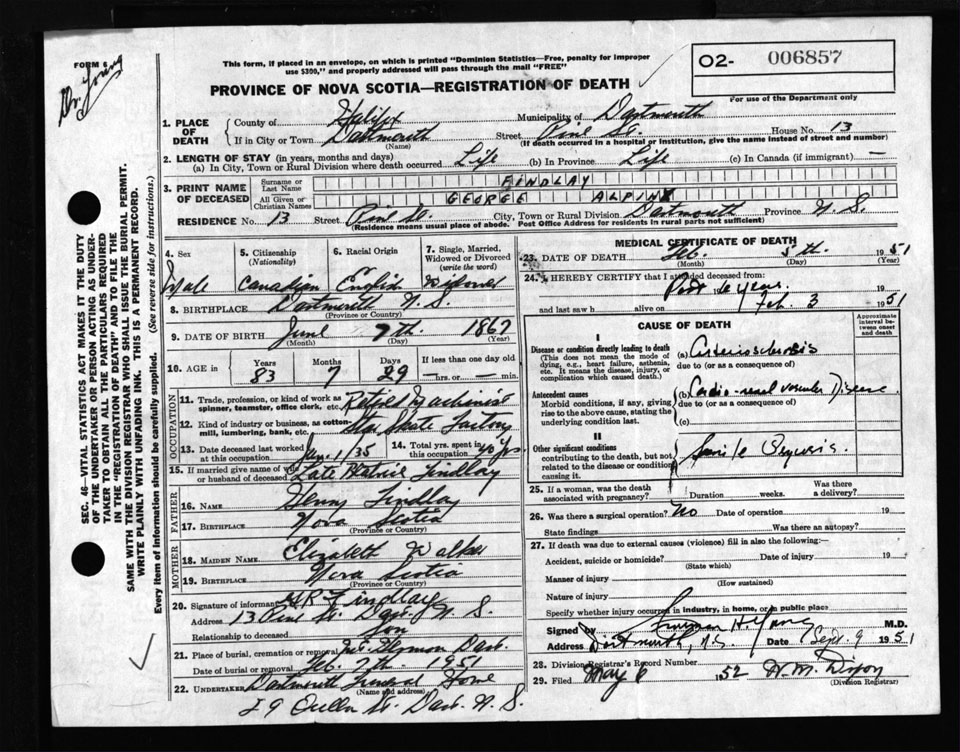 FORM 6
Dr. Young
This form, if placed in an envelope, on which is printed "Dominion Statistics—Free, penalty for improper
use $300," and properly addressed will pass through the mail "FREE"
O2- 006857
PROVINCE OF NOVA SCOTIA—REGISTRATION OF DEATH
For use of the Department only
1. PLACE OF DEATH
County of Halifax Municipality of Dartmouth
If in City or Town Dartmouth Street Pine St. House No. 13
(Name) (If death occurred in a hospital or institution, give the name instead of street and number)
2. LENGTH OF STAY (in years, months and days)
(a) In City, Town or Rural Division where death occurred Life (b) In Province Life (c) In Canada (if immigrant) —
3. PRINT NAME OF DECEASED
Surname or Last Name FINDLAY
All Given or Christian Names GEORGE ALPIN
RESIDENCE No. 13 Street Pine St. City, Town or Rural Division Dartmouth Province N.S.
(Residence means usual place of abode. Post Office Address for residents in rural parts not sufficient)
4. Sex Male
5. Citizenship (Nationality) Canadian
6. Racial Origin English
7. Single, Married, Widowed or Divorced (write the word) Widower
8. BIRTHPLACE Dartmouth N.S.
(Province or Country)
9. DATE OF BIRTH June 7th. 1867
(Month) (Day) (Year)
10. AGE in Years 83 Months 7 Days 29 If less than one day —hrs. or — min.
OCCUPATION
11. Trade, profession, or kind of work as spinner, teamster, office clerk, etc. Retired Machinist
12. Kind of industry or business, as cotton-mill, lumbering, bank, etc. Skate Factory
13. Date deceased last worked at this occupation 1/35
14. Total yrs. spent in this occupation 40 yrs.
15. If married give name of wife or husband of deceased Late Beatrice Findlay
FATHER
16. NAME Henry Findlay
17. BIRTHPLACE Nova Scotia
(Province or Country)
MOTHER
18. MAIDEN NAME Elizabeth Walker
19. BIRTHPLACE Nova Scotia
(Province or Country)
20. Signature of informant Findlay
Address 13 Pine St. Dart. N.S.
Relationship to deceased Son
21. Place of burial, cremation or removal Mt. Hermon Dart.
Date of burial or removal Feb. 7th. 1951
22. UNDERTAKER Dartmouth Funeral Home
(Name and address)
29 Queen St. Dart. N.S.
MEDICAL CERTIFICATE OF DEATH
23. DATE OF DEATH Feb. 5th 1951
(Month) (Day) (Year)
24. I HEREBY CERTIFY that I attended deceased from
Past 6 years.
and last saw h alive on Feb. 3 1951
CAUSE OF DEATH
Approximate interval between onset and death
I
Disease or condition directly leading to death
(This does not mean the mode of dying, e.g., heart failure, asthenia, etc. It means the disease, injury, or complication which caused death.)
(a) Arteriosclerosis
due to (or as a consequence of)
Antecedent causes
Morbid conditions, if any, giving rise to the above cause, stating the underlying condition last.
(b) Cardio-renal vascular Disease
due to (or as a consequence of)
(c)
II
Other significant conditions
contributing to the death, but not related to the disease or condition causing it.
Senile
25. If a woman, was the death associated with pregnancy? Duration weeks. Was there a delivery?
26. Was there a surgical operation? No Date of operation 19
State findings Was there an autopsy?
27. If death was due to external causes (violence) fill in also the following:—
Accident, suicide or homicide? Date of injury 19
(State which)
Manner of injury
(How sustained)
Nature of injury
Specify whether injury occurred in industry, in home, or in public place
Signed by M.D.
Address Dartmouth, N.S. Date Sept. 9 1951
28. Division Registrar's Record Number
29. Filed May 6 1952 H.M. Dixon
(Division Registrar)
SEC. 46—VITAL STATISTICS ACT MAKES IT THE DUTY
OF THE UNDERTAKER OR PERSON ACTING AS UNDER-
TAKER TO OBTAIN ALL THE PARTICULARS REQUIRED
IN THE "REGISTRATION OF DEATH" AND TO FILE THE
SAME WITH THE DIVISION REGISTRAR WHO SHALL ISSUE THE BURIAL PERMIT.
WRITE PLAINLY WITH UNFADING INK. THIS IS A PERMANENT RECORD.
Every item of information should be carefully supplied. (See reverse side for instructions.)